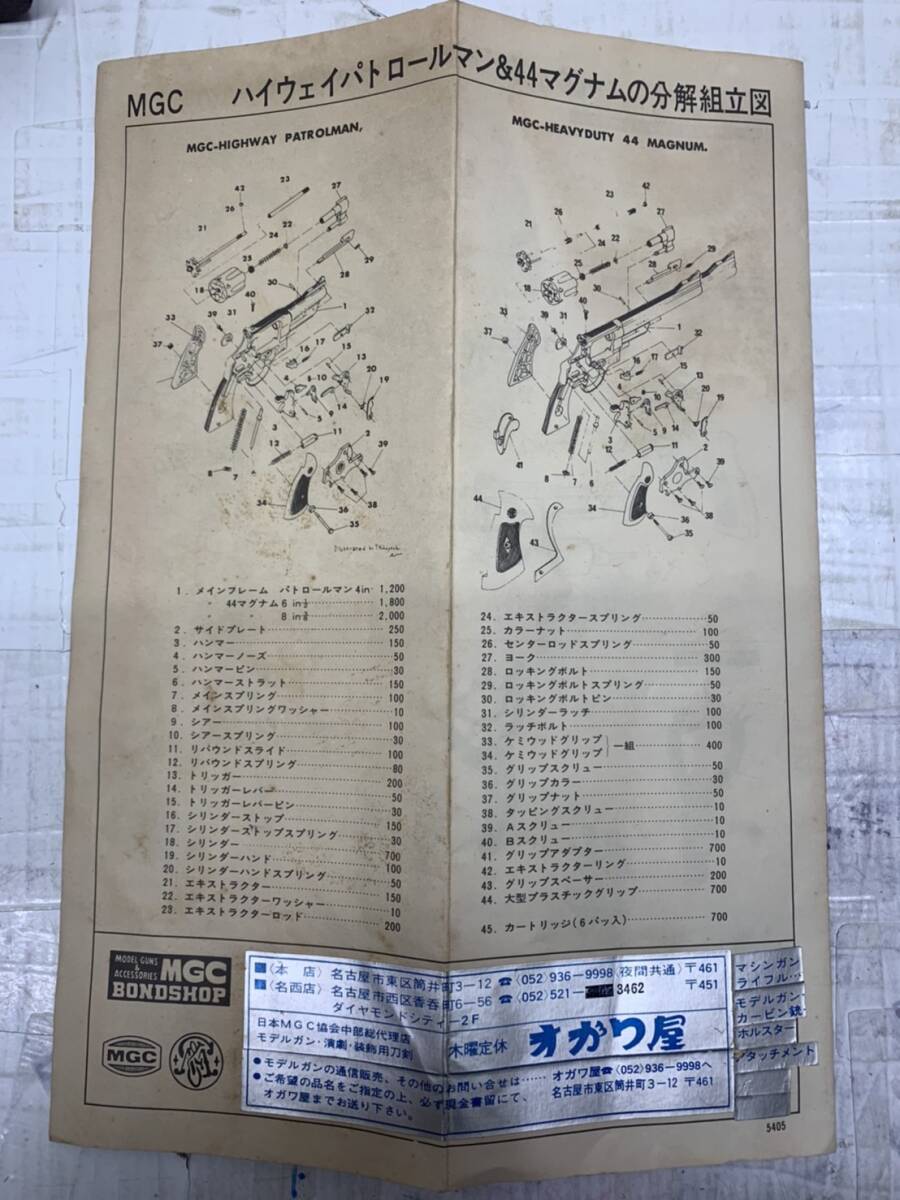 MGC ハイウェイパトロールマン&44マグナムの分解組立図
MGC-HIGHWAY PATROLMAN,
MGC-HEAVYDUTY 44 MAGNUM.
1. メインフレーム パトロールマン4in 1,200
〃 44マグナム6 in½ 1,800
〃 〃 8 in⅜ 2,000
2. サイドプレート 250
3. ハンマー 150
4. ハンマーノーズ 50
5. ハンマーピン 30
6. ハンマーストラット 150
7. メインスプリング 100
8. メインスプリングワッシャー 10
9. シアー 100
10. シアースプリング 30
11. リバウンドスライド 100
12. リバウンドスプリング 80
13. トリッガー 200
14. トリッガーレバー 50
15. トリッガーレバーピン 30
16. シリンダーストップ 150
17. シリンダーストップスプリング 30
18. シリンダー 700
19. シリンダーハンド 100
20. シリンダーハンドスプリング 50
21. エキストラクター 150
22. エキストラクターワッシャー 10
23. エキストラクターロッド 200
24. エキストラクタースプリング 50
25. カラーナット 100
26. センターロッドスプリング 50
27. ヨーク 300
28. ロッキングボルト 150
29. ロッキングボルトスプリング 50
30. ロッキングボルトピン 30
31. シリンダーラッチ 100
32. ラッチボルト 100
33. ケミウッドグリップ
34. ケミウッドグリップ 一組 400
35. グリップスクリュー 50
36. グリップカラー 30
37. グリップナット 50
38. タッピングスクリュー 10
39. Aスクリュー 10
40. Bスクリュー 10
41. グリップアダプター 700
42. エキストラクターリング 10
43. グリップスペーサー 200
44. 大型プラスチックグリップ 700
45. カートリッジ(6パッ入) 700
MODEL GUNS & ACCESSORIES MGC
BONDSHOP
MGC
〈本 店〉名古屋市東区筒井町3-12 ☎〈052〉936-9998〈夜間共通〉〒461
〈名西店〉名古屋市西区香呑町6-56 ☎〈052〉521- 3462 〒451
ダイヤモンドシティー2F
日本MGC協会中部総代理店
モデルガン・演劇・装飾用刀剣
木曜定休 オガワ屋
●モデルガンの通信販売、その他のお問い合せは…… オガワ屋☎〈052〉936-9998へ
●ご希望の品名をご指定の上、必ず現金書留にて、 名古屋市東区筒井町3-12 〒461
オガワ屋までお送り下さい。
マシンガン
ライフル…
モデルガン
カービン銃
ホルスター
アタッチメント
5405